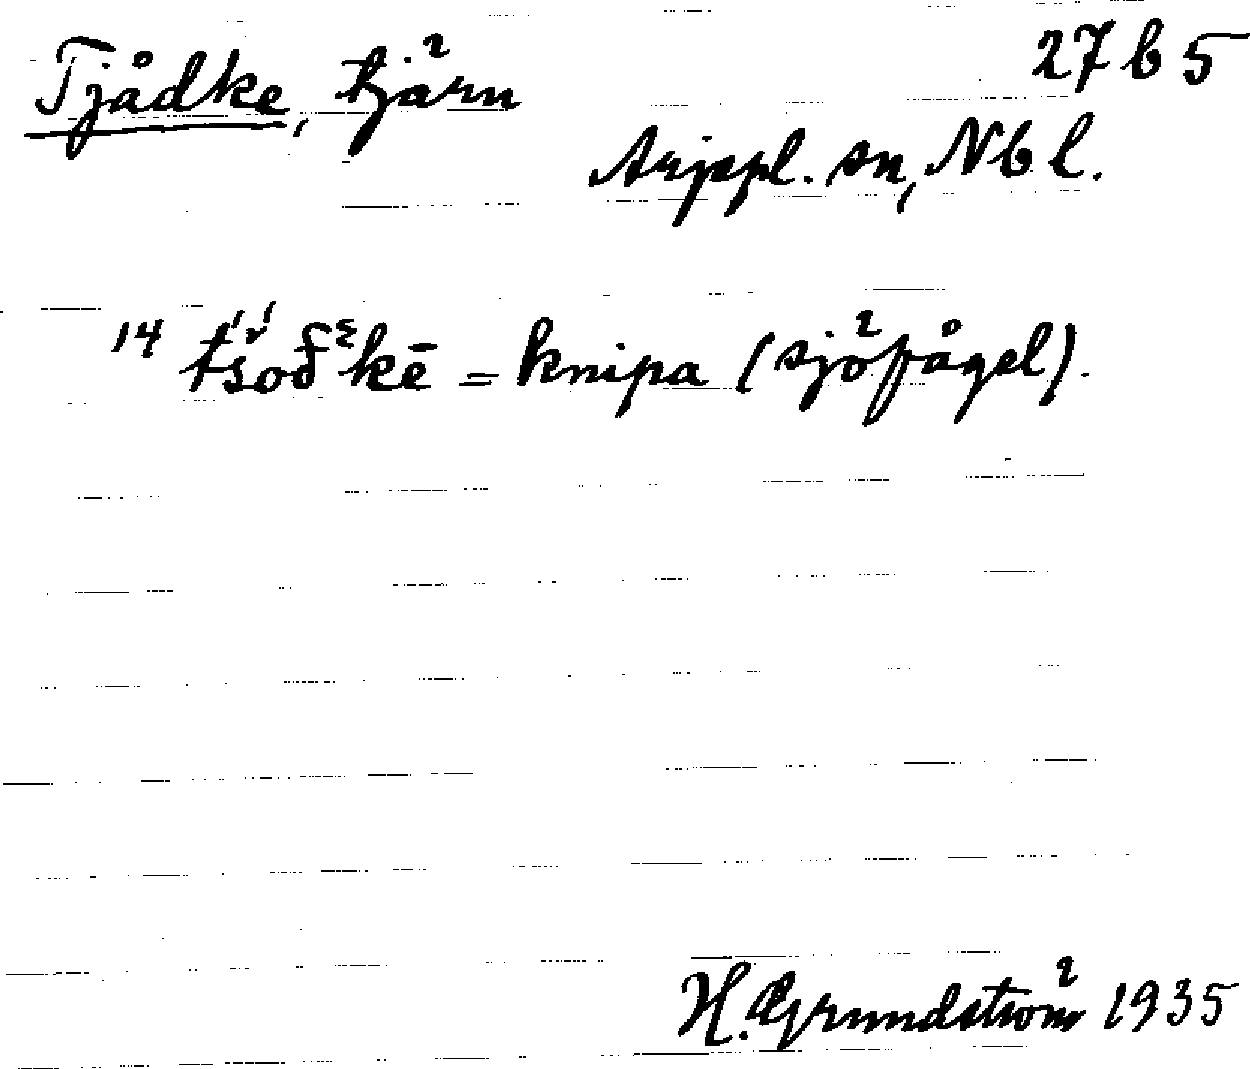 Tjådke, tjärn
27 b 5
Arjeppl. sn, Nbl.
14 = knipa (sjöfågel).
H. Grundström 1935